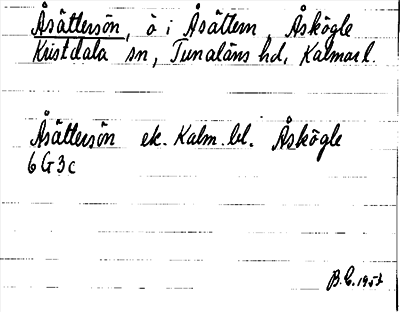 Åsättersön, ö i Åsättern, Åskögle
Kristdala sn, Tunaläns hd, Kalmar l.
Åsättersön ek. Kalm. bl. Åskögle
6G3c
B.E. 1957